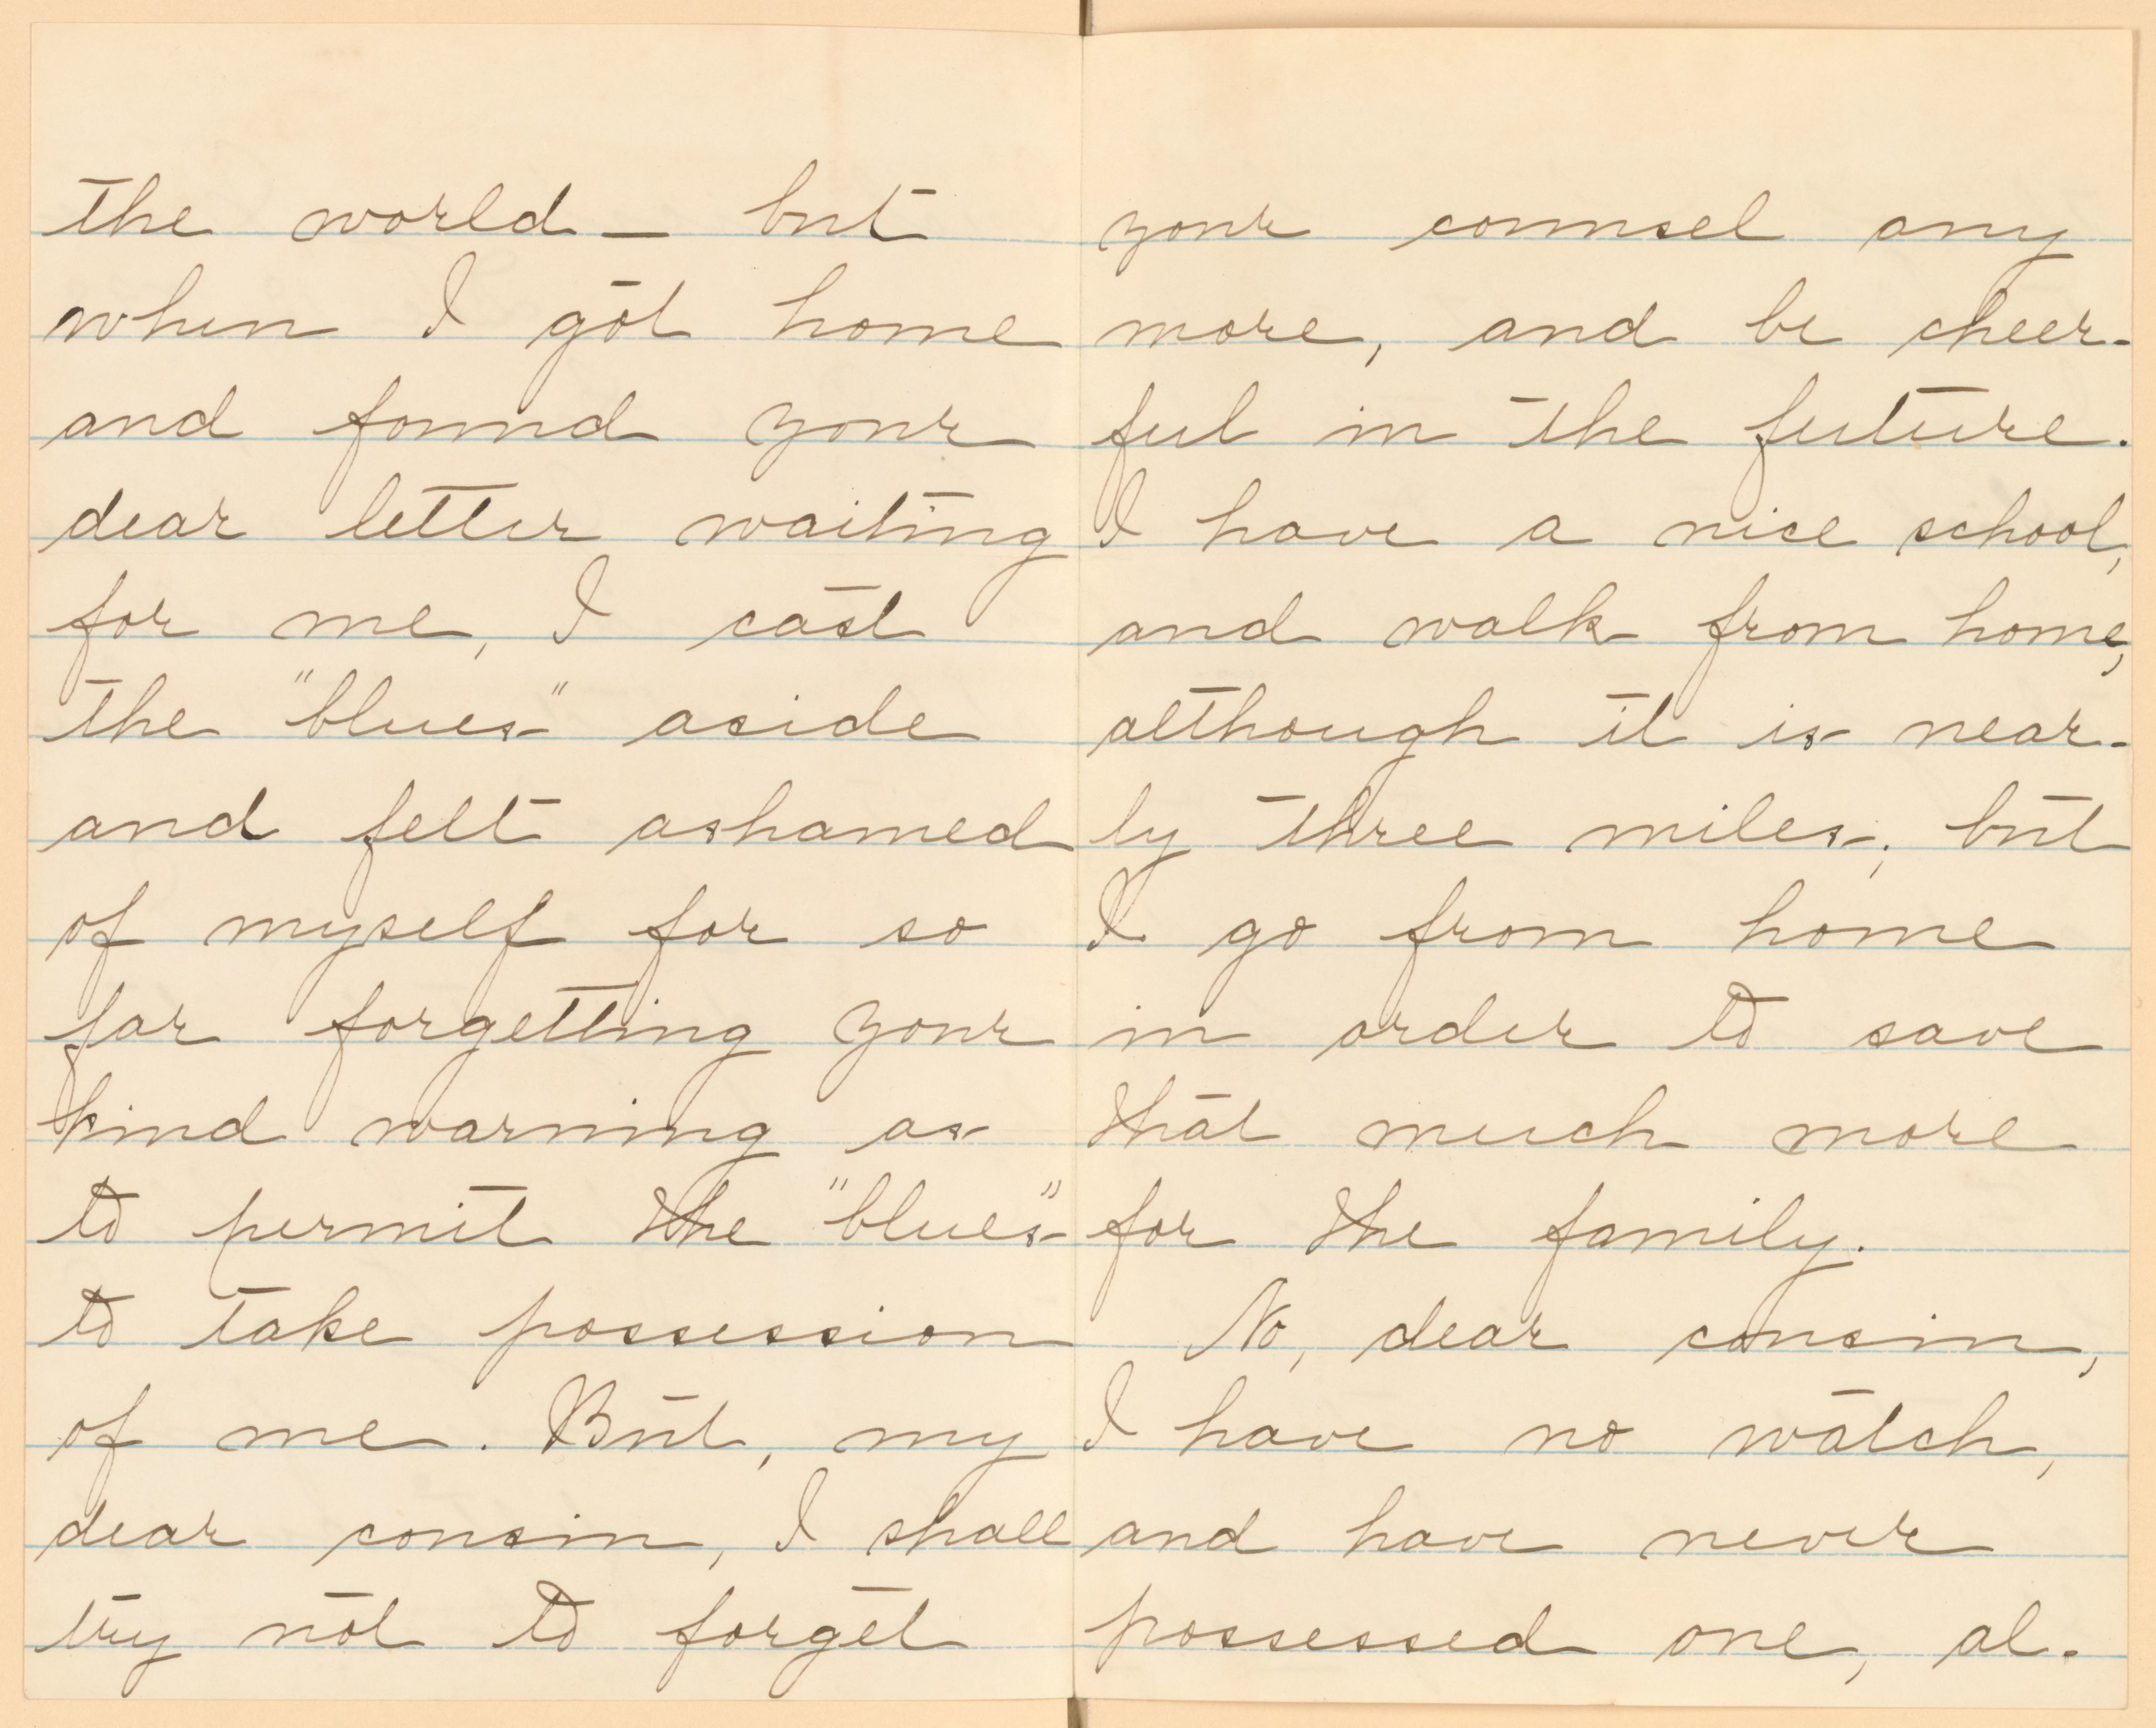 the world — but
when I got home
and found your
dear letter waiting
for me, I cast
the "blues" aside
and felt ashamed
of myself for so
far forgetting your
kind warning as
to permit the "blues"
to take possession
of me. But, my
dear cousin, I shall
try not to forget
your counsel any
more, and be cheer-
ful in the future.
I have a nice school,
and walk from home,
although it is near-
ly three miles; but
I go from home
in order to save
that much more
for the family.
No, dear cousin,
I have no watch,
and have never
possessed one, al-